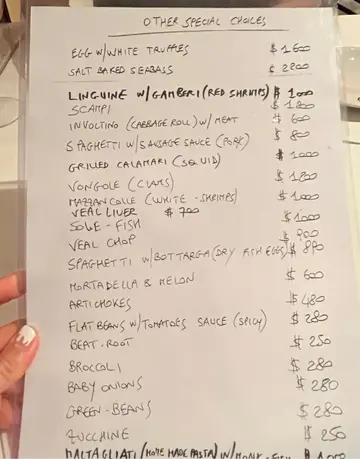 OTHER SPECIAL CHOICES
EGG W/WHITE TRUFFLES $1600
SALT BAKED SEABASS $2200
LINGUINE W/GAMBERI (RED SHRIMPS) $1000
SCAMPI $1200
INVOLTINO (CABBAGE ROLL) W/ MEAT $600
SPAGHETTI W/SAUSAGE SAUCE (PORK) $800
GRILLED CALAMARI (SQUID) $1000
VONGOLE (CLAMS) $1200
MAZZANCOLLE (WHITE-SHRIMPS) $1000
VEAL LIVER $700
SOLE-FISH $1000
VEAL CHOP $900
SPAGHETTI W/BOTTARGA (DRY FISH EGGS) $880
MORTADELLA & MELON $600
ARTICHOKES $480
FLAT BEANS W/TOMATOES SAUCE (SPICY) $280
BEAT-ROOT $250
BROCCOLI $280
BABY ONIONS $280
GREEN-BEANS $280
ZUCCHINE $250
MALTAGLIATI (HOME MADE PASTA) W/MONK-FISH $